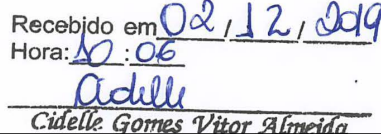 Recebido em 02 / 12 / 2019
Hora: 10 : 06
Cidelle
Cidelle Gomes Vitor Almeida